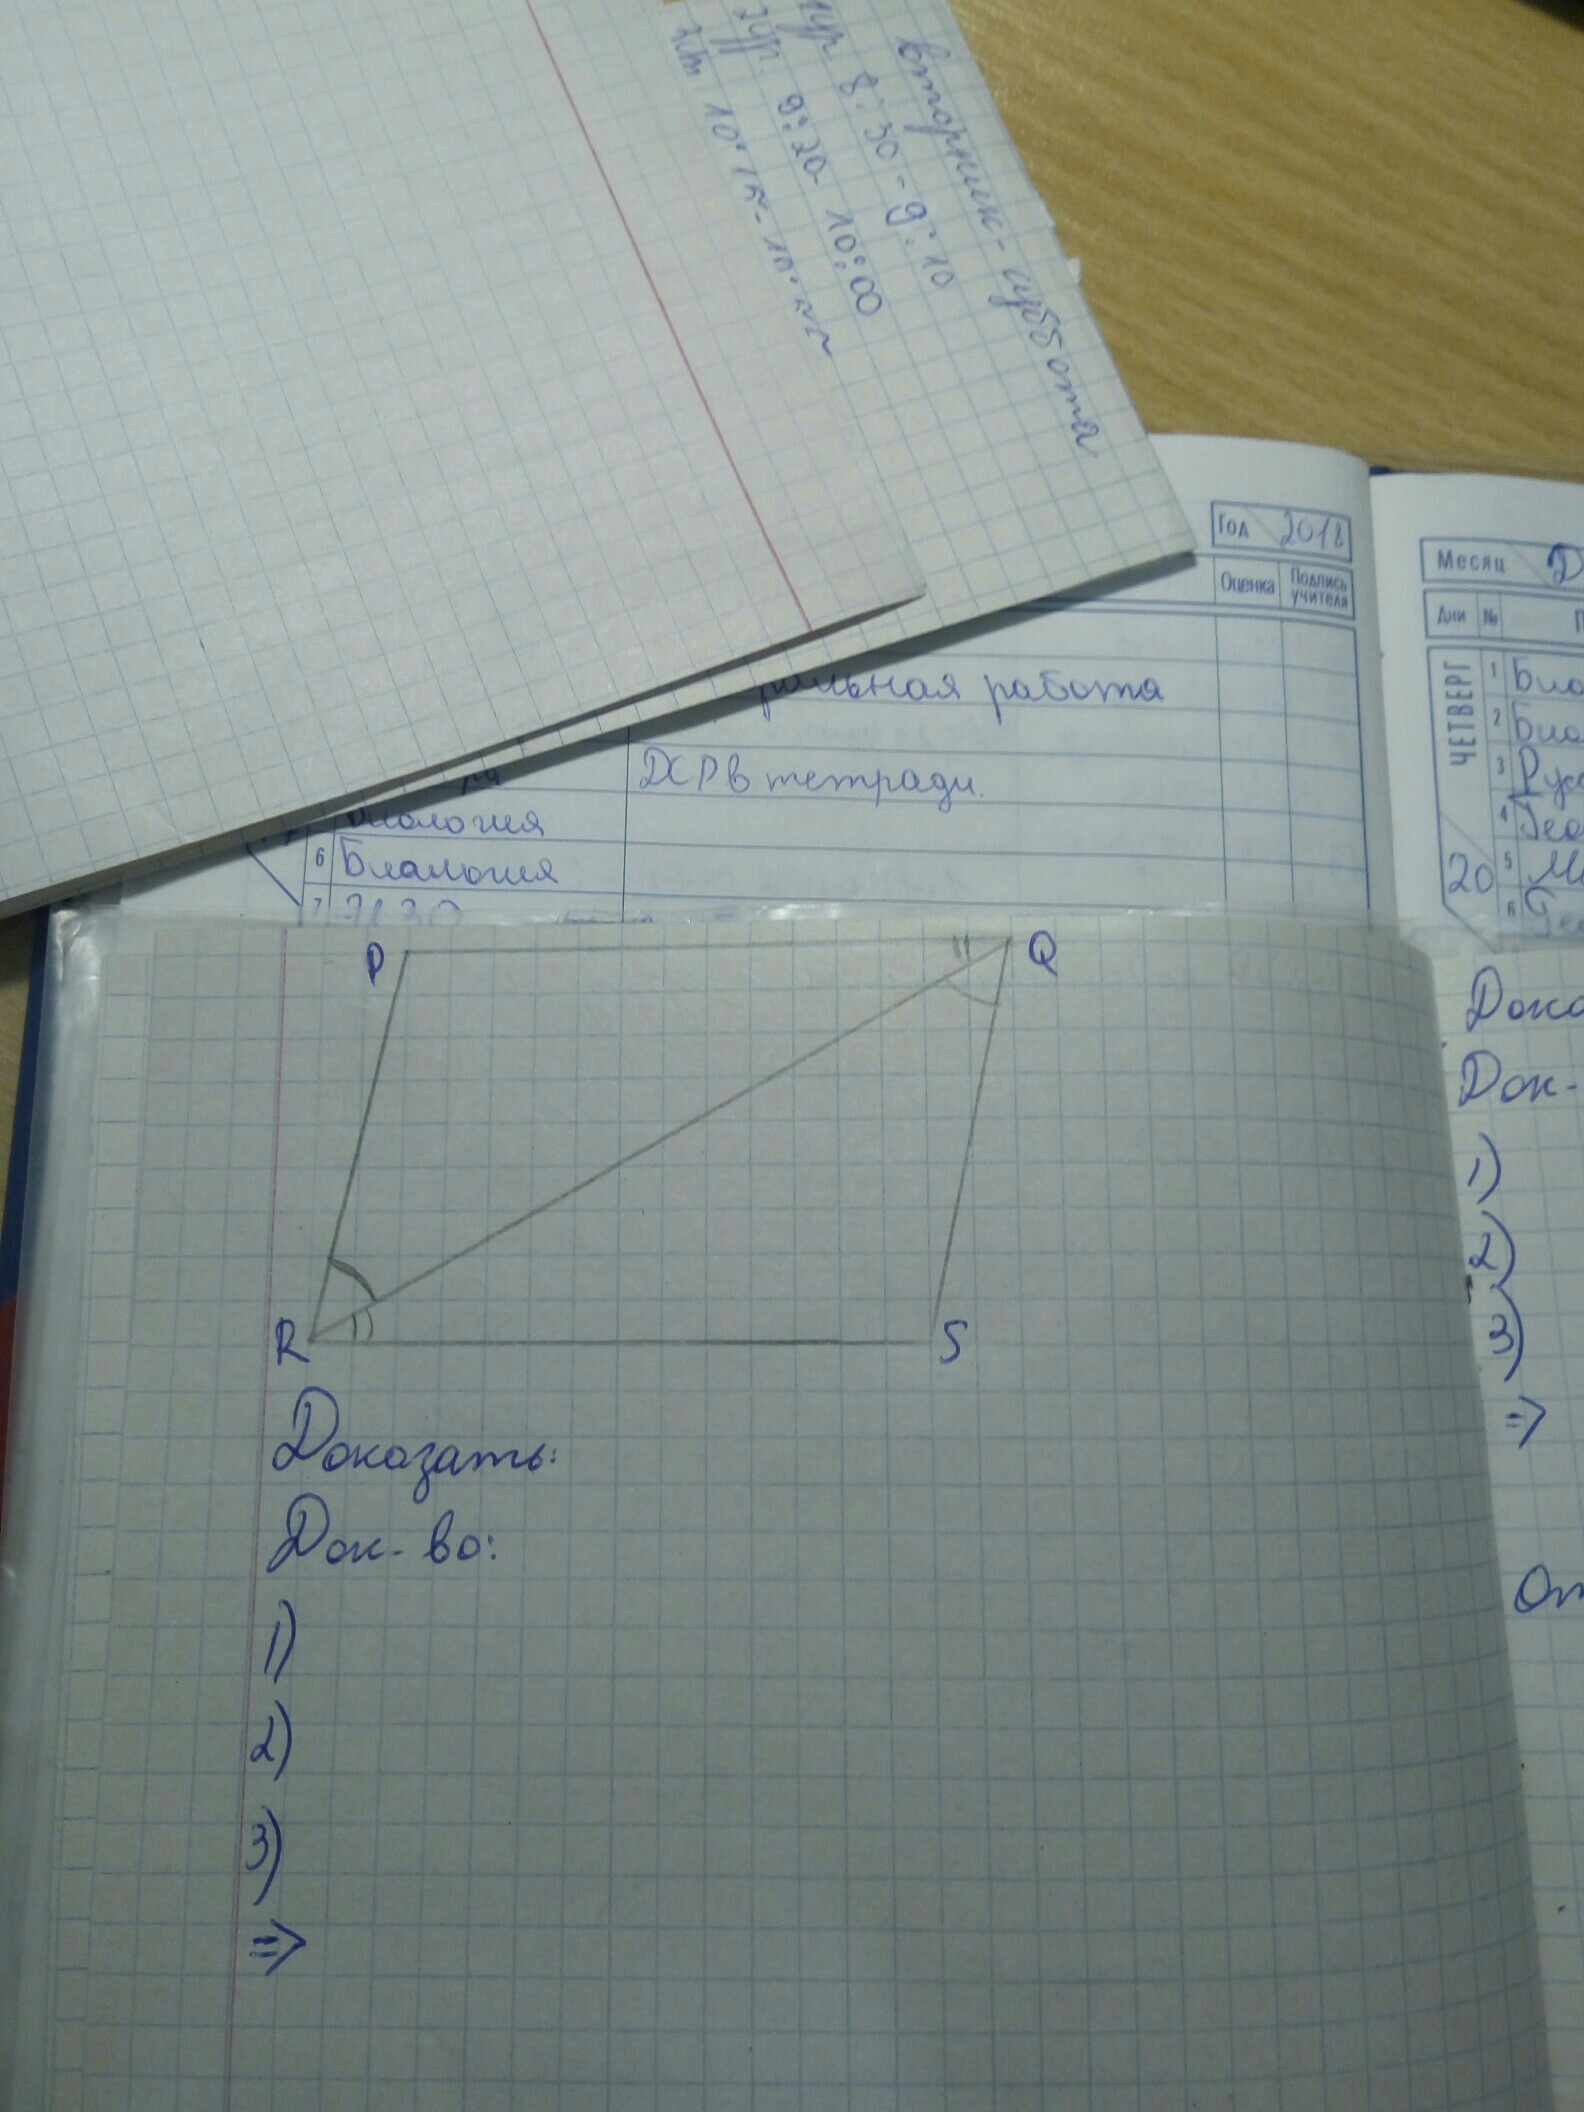 вторник-суббота
1ур 8:30 - 9:10
2ур. 9:20- 10:00
Год 2018
Оценка Подпись учителя
рольная работа
ДСР в тетради.
6 Биология
7
Месяц Д
Дни № П
ЧЕТВЕРГ
20
1 Био
2 Био
3 Русс
4 Гео
5 Ма
6 Гео
P Q
R S
Доказать:
Док-во:
1)
2)
3)
=>
Дока
Док-
1)
2)
3)
=>
От